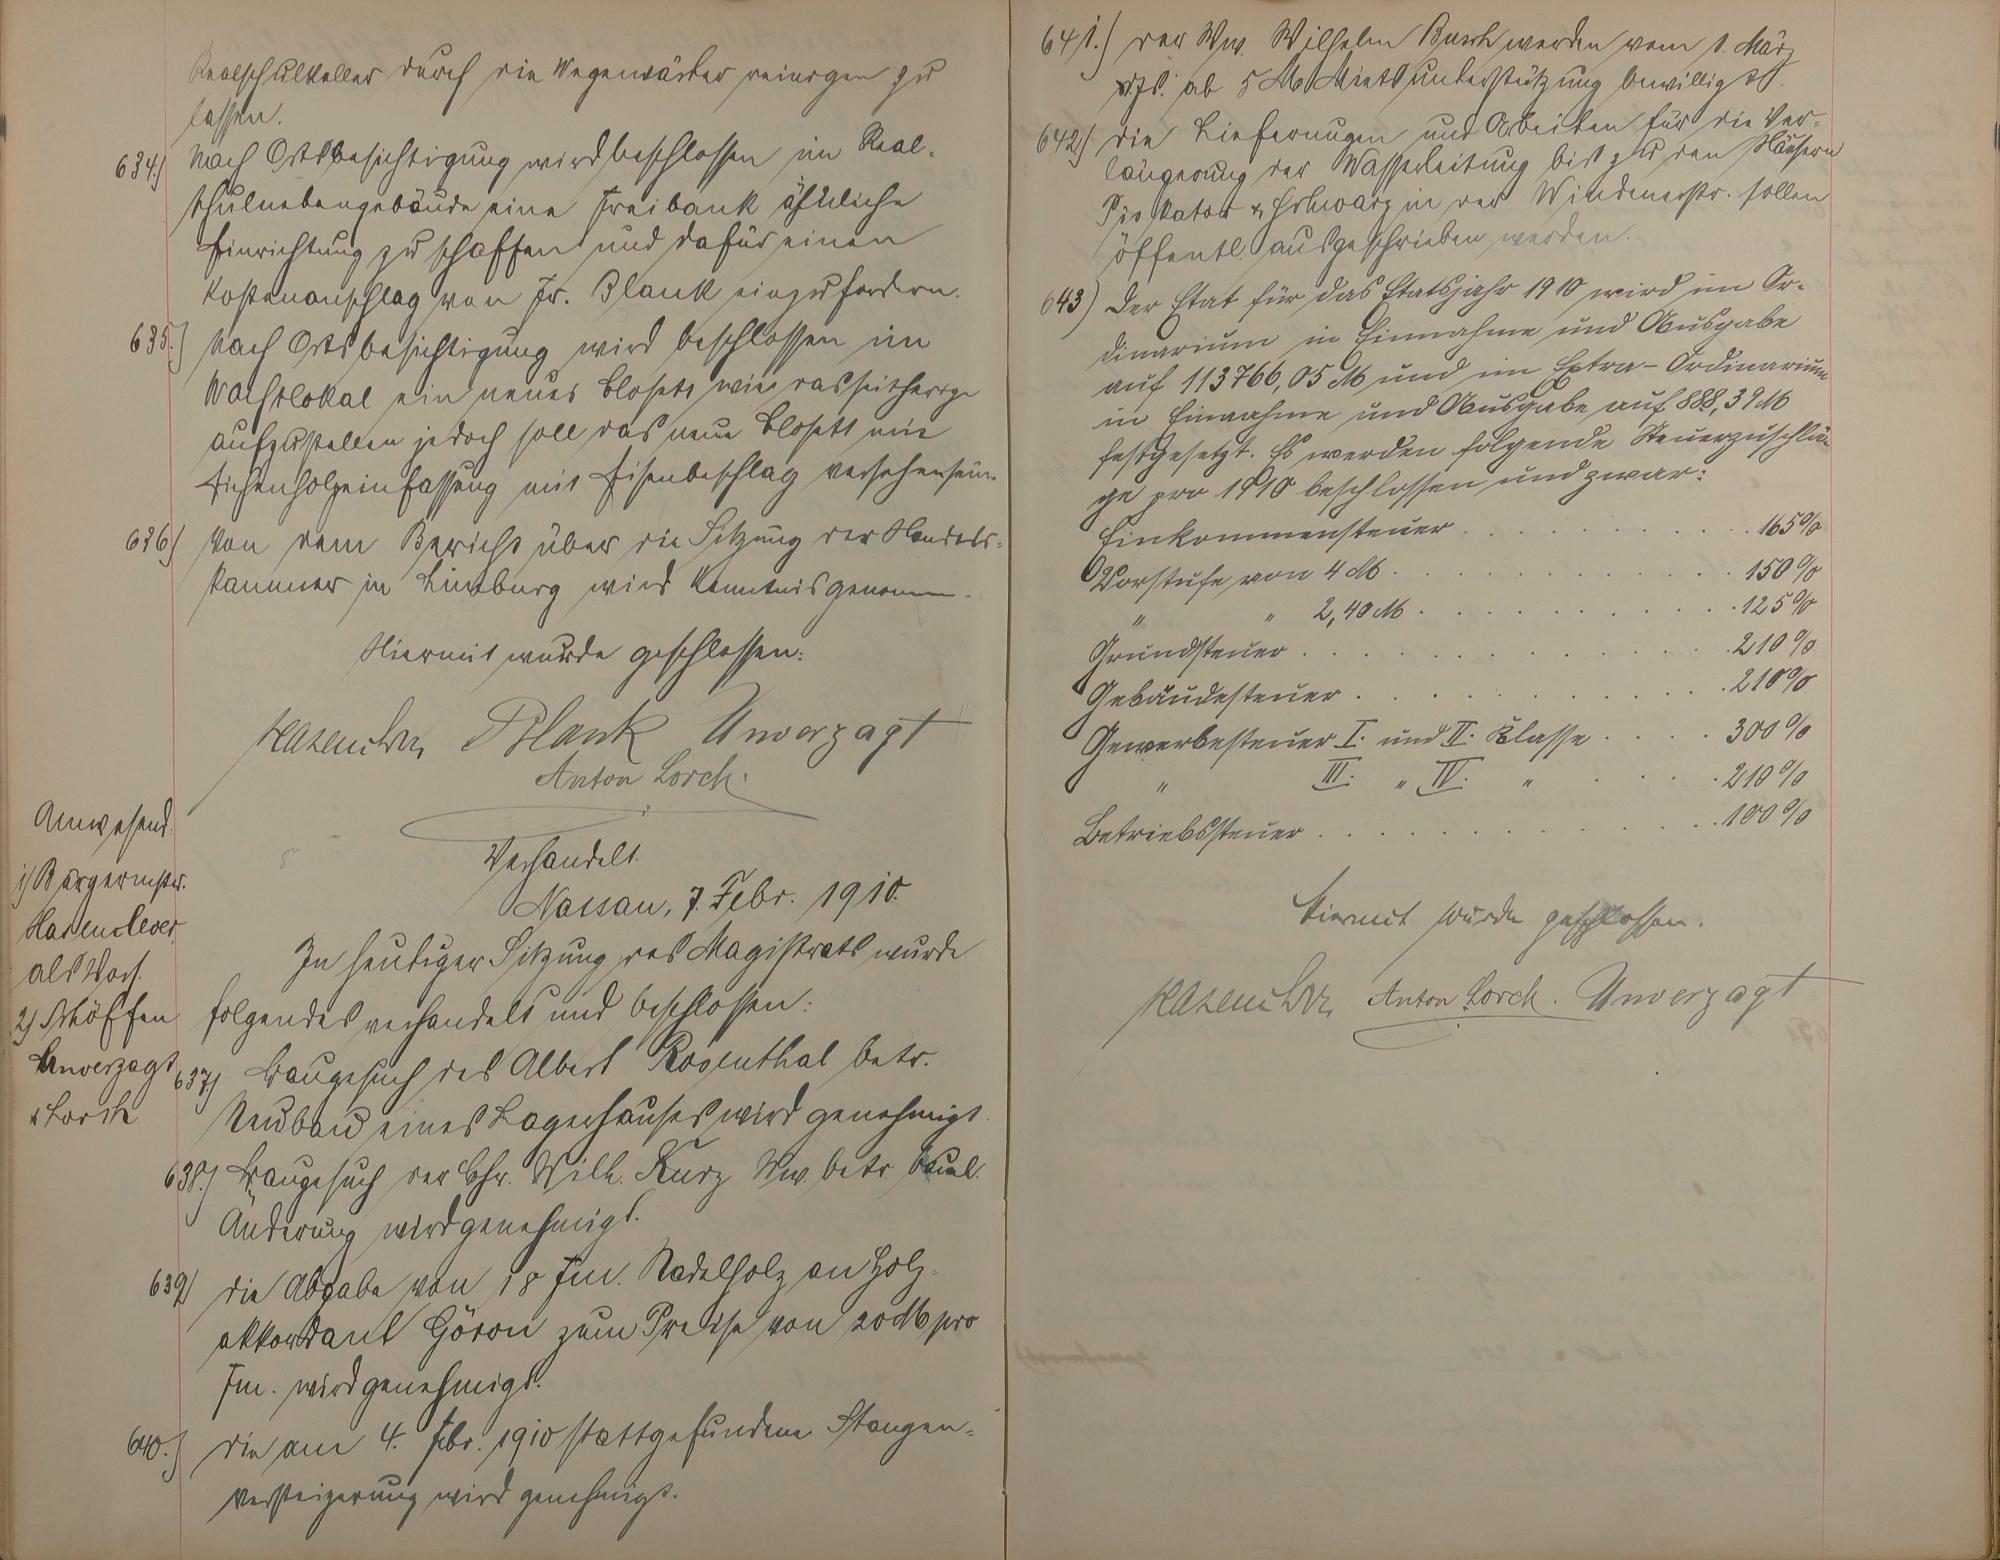 Realschulkeller durch die Wegewärter reinigen zu
lassen.
634.) Nach Ortsbesichtigung wird beschlossen im Real-
schulnebengebäude eine Freibank ähnliche
Einrichtung zu schaffen und dafür einen
Kostenanschlag von Fr. Blank einzufordern.
635.) Nach Ortsbesichtigung wird beschlossen im
Wachtlokal ein neues Closett wie das seitherige
aufzustellen jedoch soll das neue Closett mit
Eichenholzeinfassung mit Eisenbeschlag versehen sein.
636) Von dem Bericht über die Sitzung der Handels-
kammer in Limburg wird Kenntnis genommen.
Hiermit wurde geschlossen:
Hasenclever Blank Unverzagt
Anton Lorch.
Anwesend:
1) Bürgermstr.
Hasenclever
als Vors.
2) Schöffen
Unverzagt
& Lorch
Verhandelt
Nassau, 7. Febr. 1910.
In heutiger Sitzung des Magistrats wurde
folgendes verhandelt und beschlossen:
637.) Baugesuch des Albert Rosenthal betr.
Neubau eines Lagerhauses wird genehmigt.
638.) Baugesuch der Chr. Wilh. Kurz Ww. betr.
Änderung wird genehmigt.
639) Die Abgabe von 18 Fm. Nadelholz an Holz-
akkordant zum Preise von 20 M pro
Fm. wird genehmigt.
640.) Die am 4. Febr. 1910 stattgefundene Stangen-
versteigerung wird genehmigt.
641.) Der Ww. Wilhelm Busch werden vom 1. März
d. Js. ab 5 M Mietsunterstützung bewilligt.
642.) Die Lieferungen und Arbeiten für die Ver-
längerung der Wasserleitung bis zu den Häusern
Piskator & Schwarz in der Windenerstr. sollen
öffentl. ausgeschrieben werden.
643) Der Etat für das Etatsjahr 1910 wird im Or-
dinarium in Einnahme und Ausgabe
auf 113766,05 M und im Extra-Ordinarium
in Einnahme und Ausgabe auf 888,39 M
festgesetzt. Es werden folgende Steuerzuschlä-
ge pro 1910 beschlossen und zwar:
Einkommensteuer . . . . . . . . . 165%
Vorstufe von 4 M . . . . . . . . . . 150%
" " 2,40 M . . . . . . . . . . 125%
Grundsteuer . . . . . . . . . . . . 210%
Gebäudesteuer . . . . . . . . . . . 210%
Gewerbesteuer I. und II. Klasse . . . . 300%
" III. " IV. " . . . . 210%
Betriebssteuer . . . . . . . . . . . . 100%
Hiermit wurde geschlossen.
Hasenclever Anton Lorch. Unverzagt